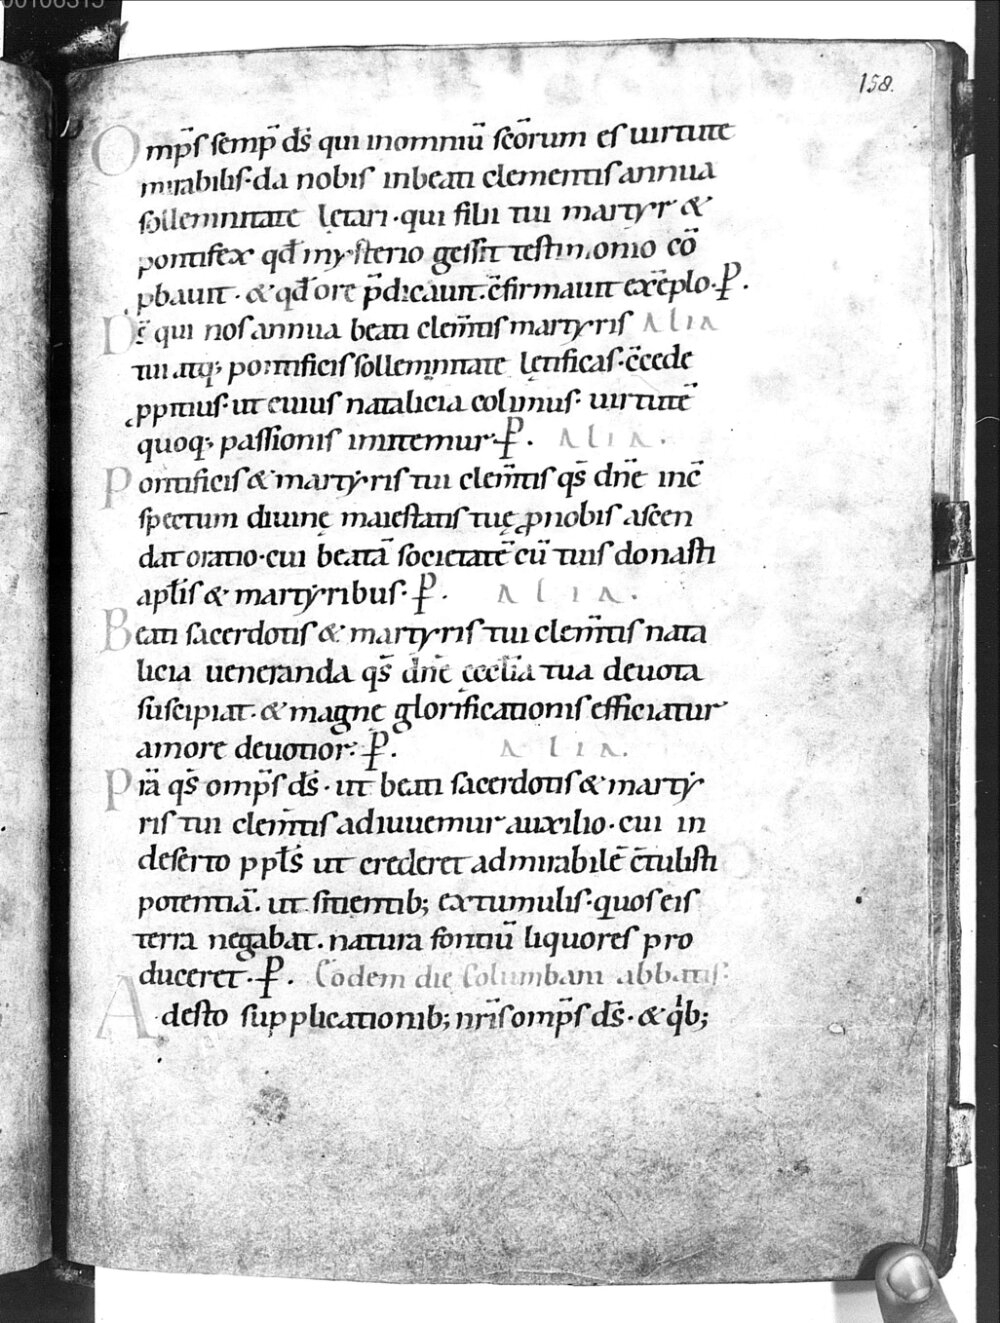 158.
Omp̄s semp̄ ds̄ qui inomniū scōrum es uirtute
mirabilis· da nobis inbeati clementis annua
sollemnitate lętari· qui filii tui martyr &
pontifex qđ mysterio gessit testimonio cō
ꝓbauit· & qđ ore p̄dicauit. c̄firmauit exēplo· P̄.
Ds̄ qui nos annua beati clem̄tis martyris ALIA
tui atq; pontificis sollemnitate lętificas· c̄cede
ꝓpitius· ut cuius natalicia colimus· uirtutē
quoq; passionis imitemur· P̄. ALIA.
Pontificis & martyris tui clem̄tis qs̄ dn̄e inc̄
spectum diuinę maiestatis tuę ꝓnobis ascen
dat oratio· cui beatā societatē cū tuis donasti
aptl̄is & martyribus· P̄. ALIA.
Beati sacerdotis & martyris tui clem̄tis nata
licia ueneranda qs̄ dn̄e ęcclīa tua deuota
suscipiat· & magnę glorificationis efficiatur
amore deuotior· P̄. ALIA.
Prā qs̄ omp̄s ds̄· ut beati sacerdotis & marty
ris tui clem̄tis adiuuemur auxilio· cui in
deserto pptl̄s ut crederet admirabilē c̄tulisti
potentiā. ut sitientib; ex tumulis· quos eis
terra negabat. natura fontiū liquores pro
duceret· P̄. Eodem die Columbani abbatis·
Adesto supplicationib; nr̄is omp̄s ds̄· & qib;